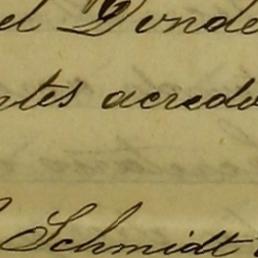 el Donde
ntes acredo
Schmidt